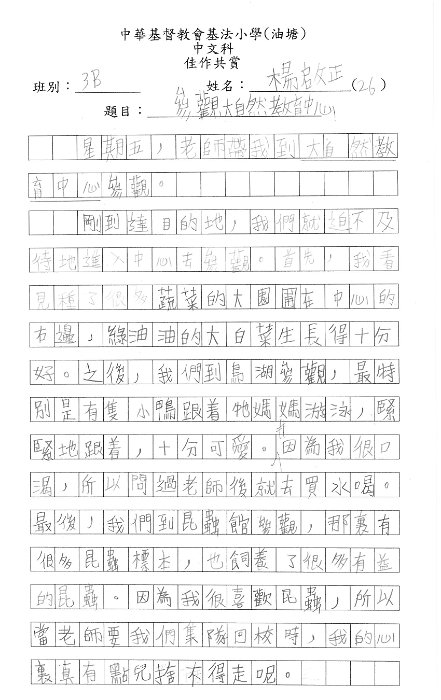 中華基督教會基法小學(油塘)
中文科
佳作共賞
班別：3B 姓名：楊啟正(26)
題目：參觀大自然教育中心
星期五，老師帶我到大自然教
育中心參觀。
剛到達目的地，我們就迫不及
待地進入中心去參觀。首先，我看
見種了很多蔬菜的大園圃在中心的
右邊，綠油油的大白菜生長得十分
好。之後，我們到鳥湖參觀，最特
別是有隻小鴨跟着牠媽媽游泳，緊
緊地跟着，十分可愛。因為我很口
渴，所以問過老師後就去買水喝。
最後，我們到昆蟲館參觀，那裏有
很多昆蟲標本，也飼養了很多有益
的昆蟲。因為我很喜歡昆蟲，所以
當老師要我們集隊回校時，我的心
裏真有點兒捨不得走呢。